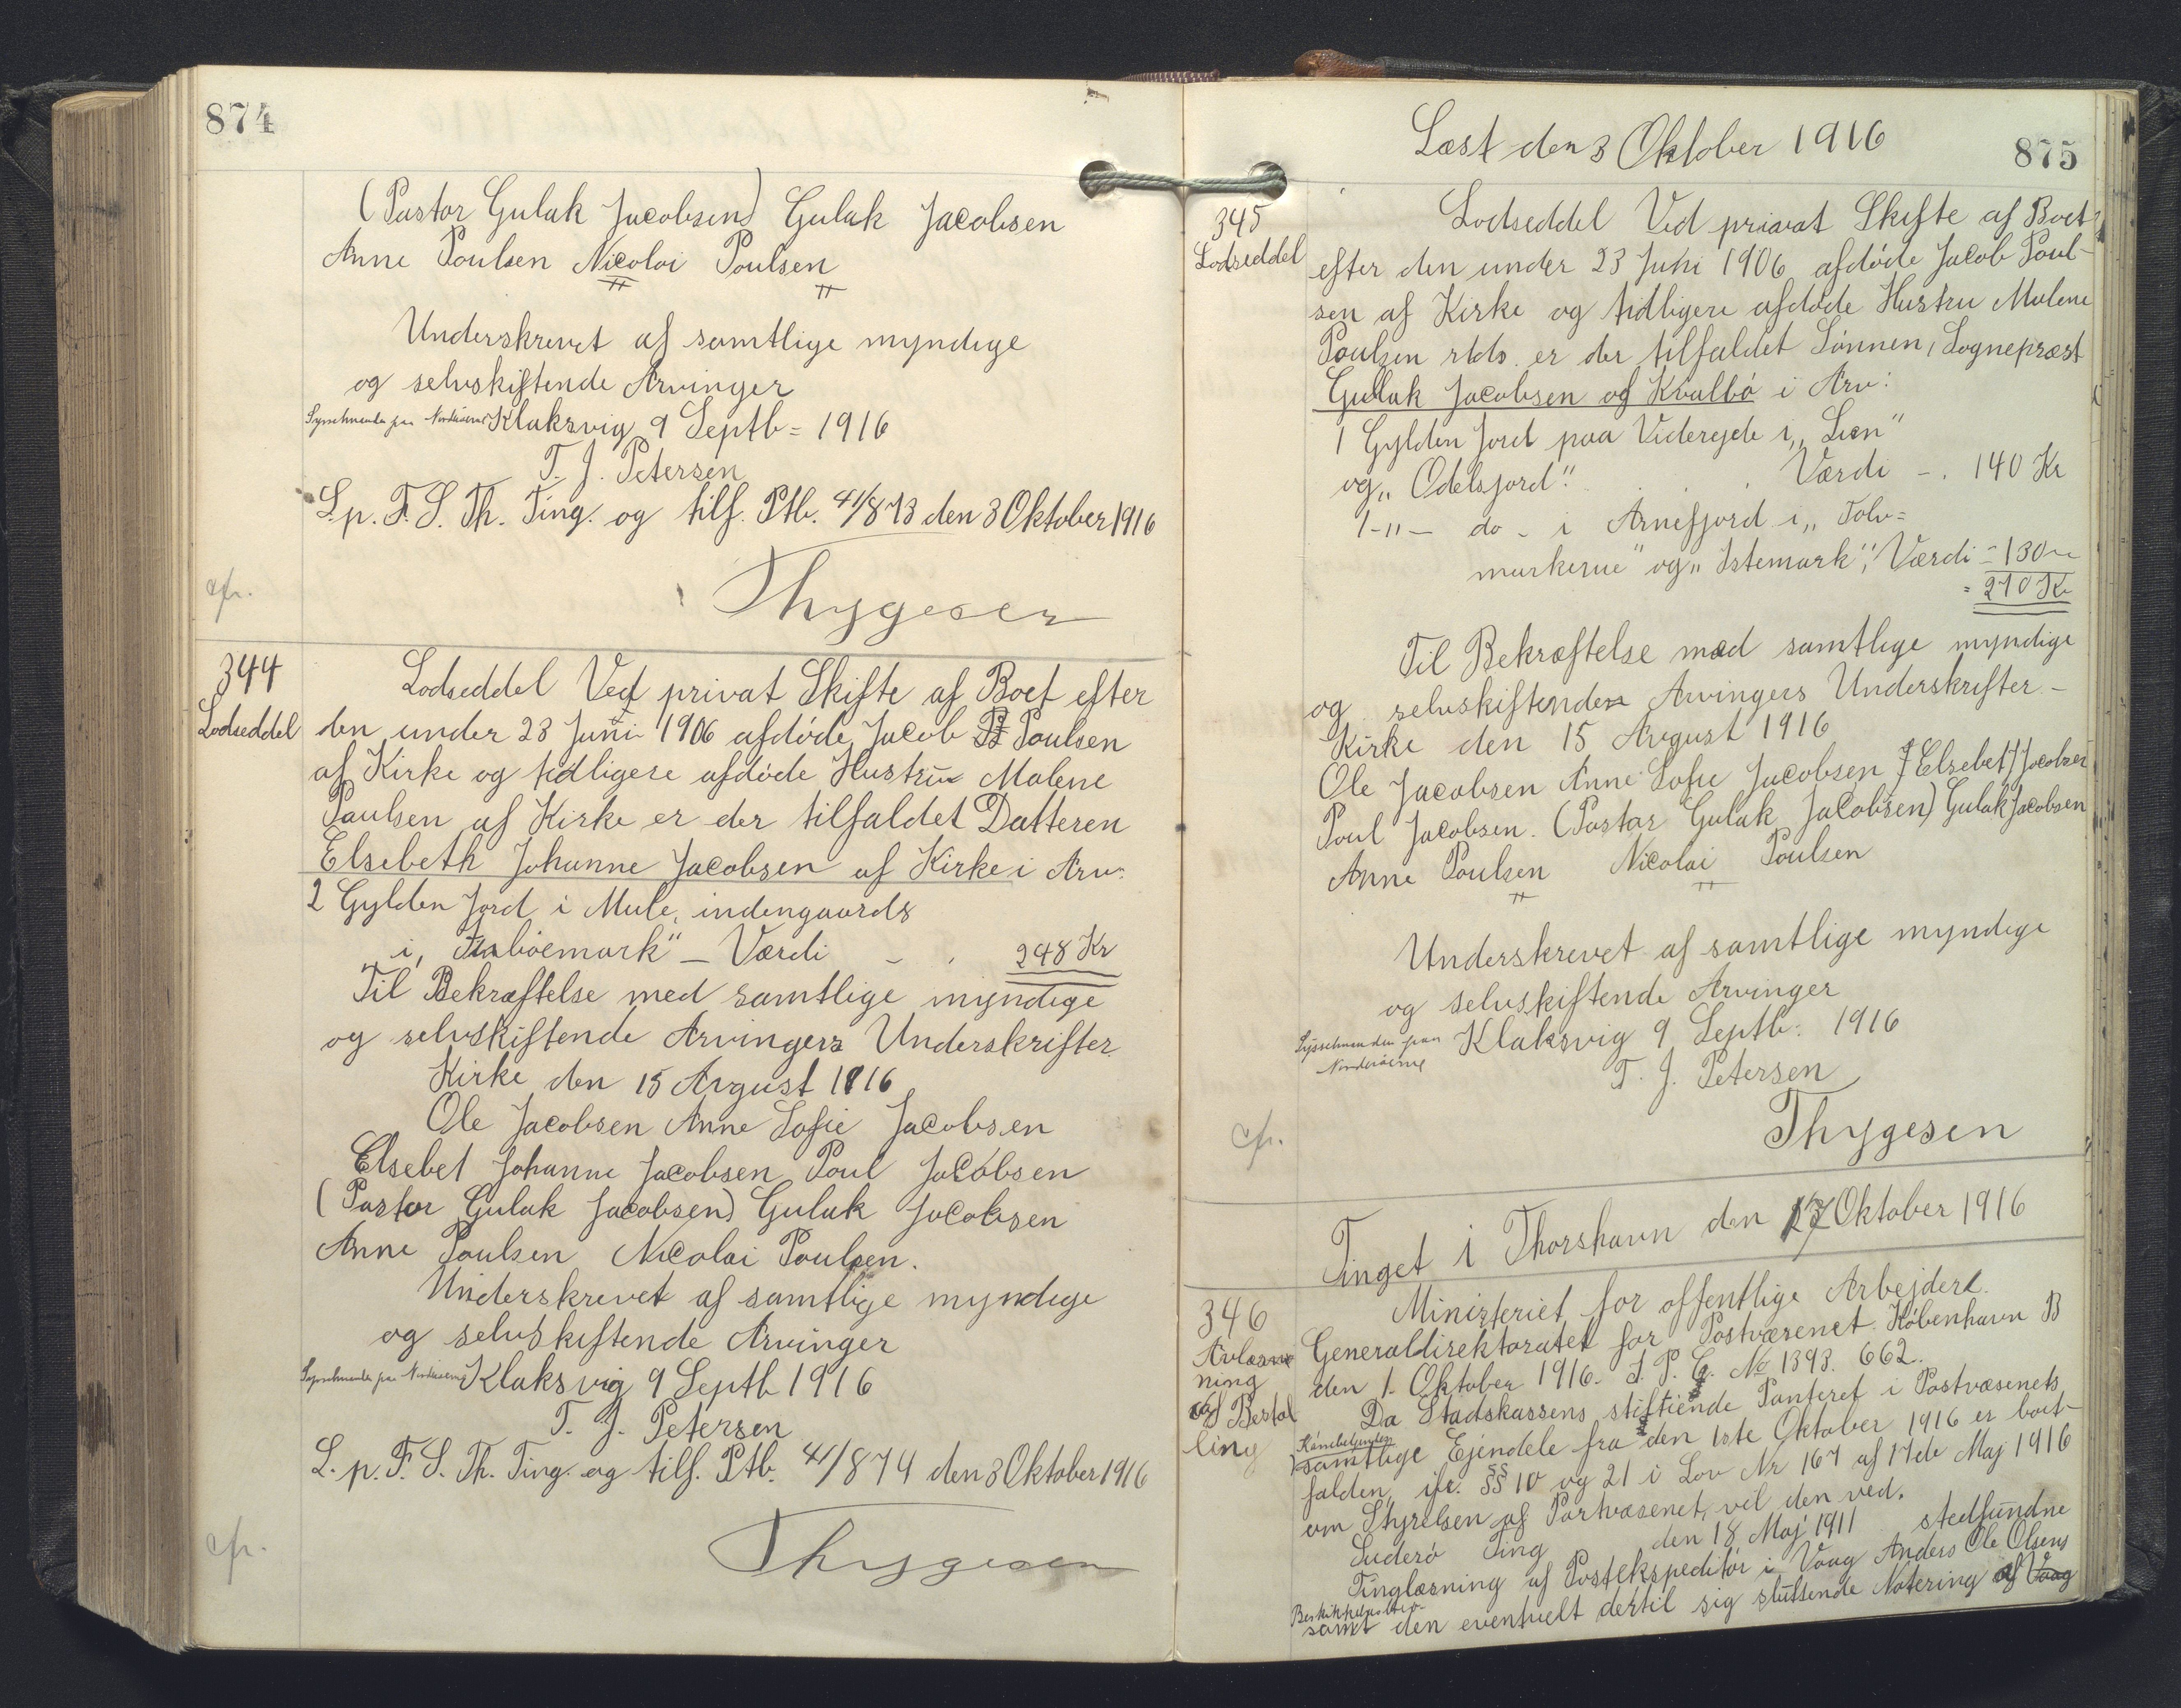 874
(Pastor Gulak Jacobsen) Gulak Jacobsen
Anne Poulsen Nicolai Poulsen
Underskrevet af samtlige myndige
og selvskiftende Arvinger
Sysselmanden paa Norderöerne Klaksvig 9 Septb = 1916
T. J. Petersen
L. p. F. S. Th. Ting. og tilf. Ptb. 41/873 den 3 Oktober 1916
cfr.
Thygesen
344
Lodseddel
Lodseddel Ved privat Skifte af Boet efter
den under 23 Juni 1906 afdöde Jacob Poulsen
af Kirke og tidligere afdöde Hustru Malene
Poulsen af Kirke er der tilfaldet Datteren
Elsebeth Johanne Jacobsen af Kirke i Arv:
2 Gylden Jord i Mule, indengaards
i, böemark" – Værdi - . 248 Kr
Til Bekræftelse med samtlige myndige
og selvskiftende Arvingers Underskrifter
Kirke den 15 Avgust 1916
Ole Jacobsen Anne Sofie Jacobsen
Elsebet Johanne Jacobsen Poul Jacobsen
(Pastor Gulak Jacobsen) Gulak Jacobsen
Anne Poulsen Nicolai Poulsen.
Underskrevet af samtlige myndige
og selvskiftende Arvinger
Sysselmanden paa Norderöerne Klaksvig 9 Septb 1916
T. J. Petersen
L. p. F. S. Th. Ting. og tilf. Ptb. 41/874 den 3 Oktober 1916
cfr.
Thygesen
Læst den 3 Oktober 1916
875
345
Lodseddel
Lodseddel Ved privat Skifte af Boet
efter den under 23 Juni 1906 afdöde Jacob Poul-
sen af Kirke og tidligere afdöde Hustru Malene
Poulsen stds. er der tilfaldet Sönnen, Sognepræst
Gullak Jacobsen af Kvalbö i Arv:
1 Gylden Jord paa Viderejde i „Lien"
og „Odelsjord". Værdi - . 140 Kr
1 –"– do - i Arnefjord i „Tolv=
markerne" og „Istemark", Værdi - 130 –
= 270 Kr
Til Bekræftelse med samtlige myndige
og selvskiftende Arvingers Underskrifter –
Kirke den 15 Avgust 1916
Ole Jacobsen Anne Sofie Jacobsen Elsebet J Jacobsen
Poul Jacobsen. (Pastor Gulak Jacobsen) Gulak Jacobsen
Anne Poulsen Nicolai Poulsen
Underskrevet af samtlige myndige
og selvskiftende Arvinger
Sysselmanden paa Norderöerne Klaksvig 9 Septb. 1916
T. J. Petersen
cfr.
Thygesen
Tinget i Thorshavn den 17 Oktober 1916
346
Avlæs
ning
af Bestal
ling
Ministeriet for offentlige Arbejder.
Generaldirektoratet for Postvæsenet. Köbenhavn B
den 1. Oktober 1916. J. P. C. No 1393. 662.
Da Stadskassens stiftiende Panteret i Postvæsenets
samtlige Ejendele fra den 1ste Oktober 1916 er bort-
falden, jfr. §§ 10 og 21 i Lov Nr 167 af 17de Maj 1916
om Styrelsen af Postvæsenet, vil den ved.
Suderö Ting den 18 Maj 1911 stedfundne
Tinglæsning af Postekspeditör i Vaag Anders Ole Olsens
samt den eventuelt dertil sig sluttende Notering af Vaag